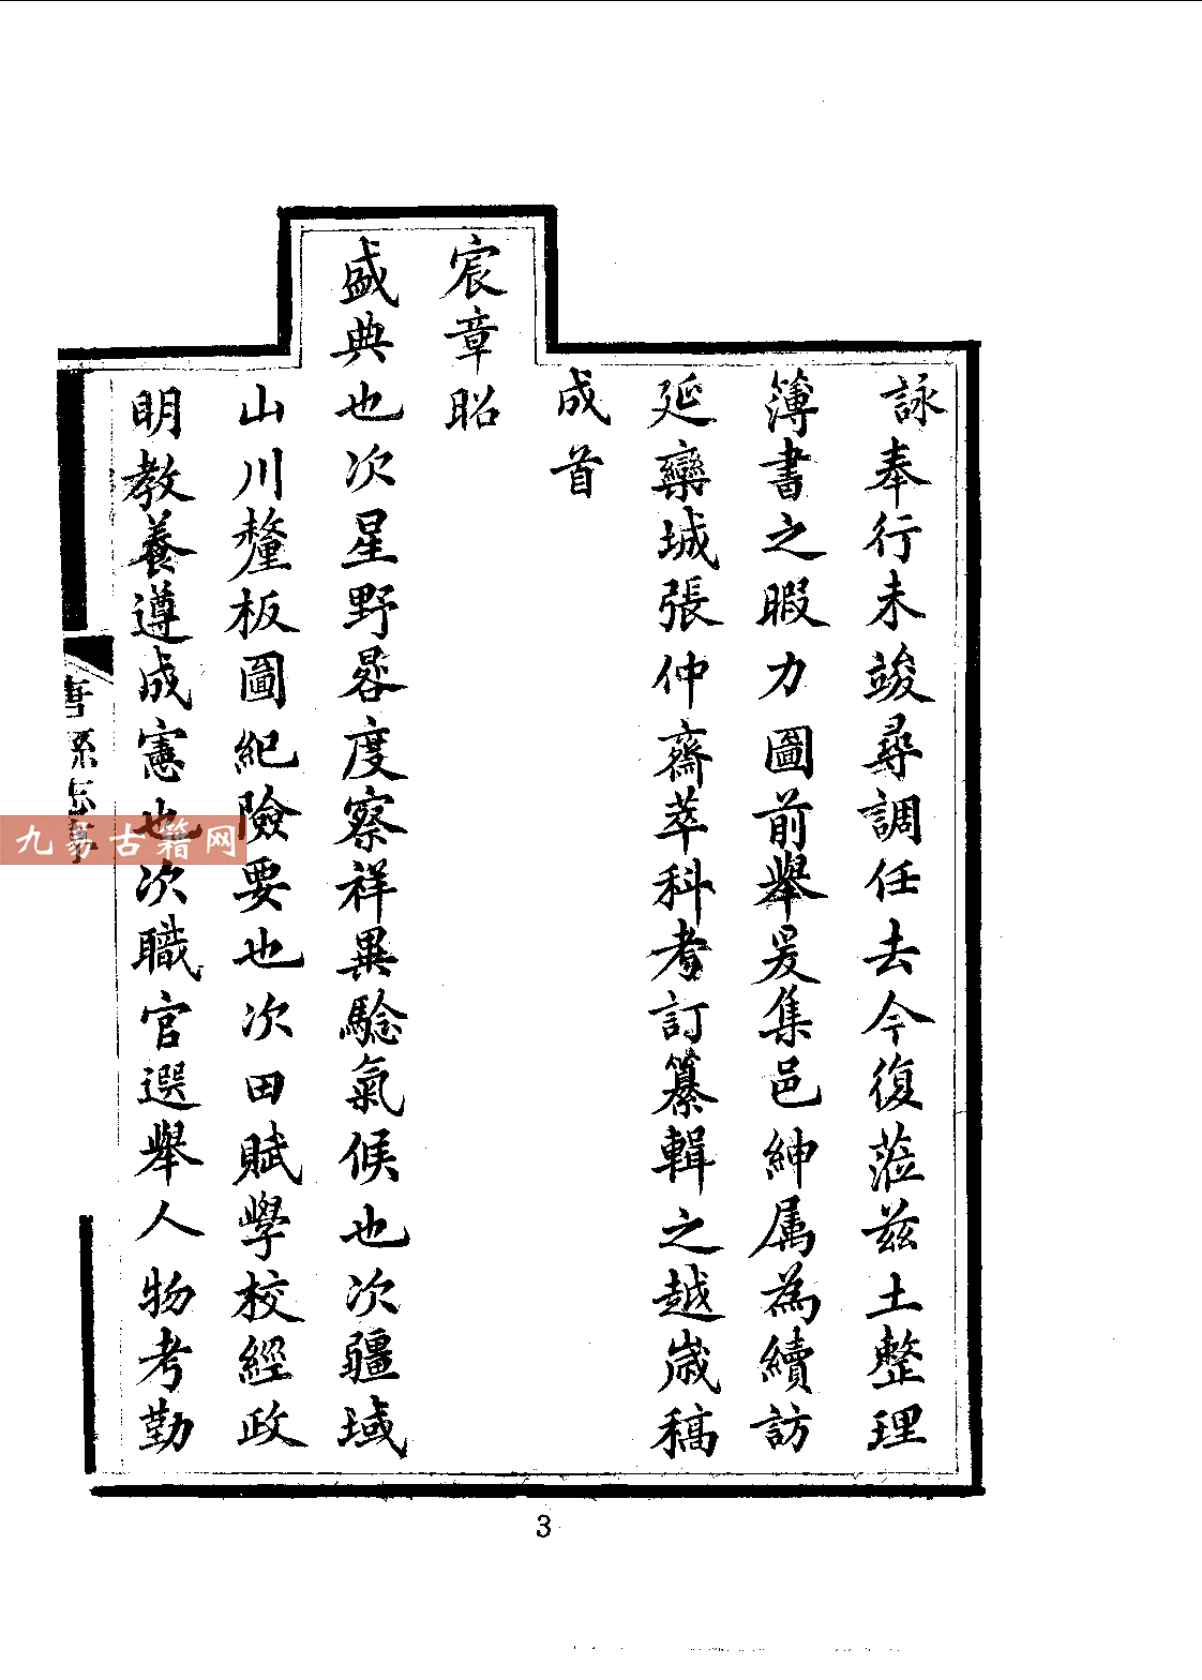 詠奉行未竣尋調任去今復蒞兹土整理
簿書之暇力圖前舉爰集邑紳属為續訪
延欒城張仲齋萃科考訂纂輯之越歲稿
成首
宸章昭
盛典也次星野晷度察祥異驗氣候也次疆域
山川釐板圖紀險要也次田賦學校經政
明教養遵成憲也次職官選舉人物考勤
九易古籍网
3